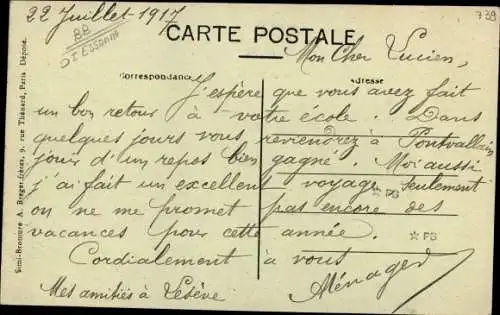 22 Juillet-1917
739
BB
CARTE POSTALE
Mon Cher Lucien,
Correspondance
Adresse
J'espère que vous avez fait
un bon retour à votre école. Dans
quelques jours vous reviendrez à Pontvallain
jouir d'un repos bien gagné. Moi aussi
j'ai fait un excellent voyage seulement
☆PB
on ne me promet pas encore des
☆PB
vacances pour cette année.
Cordialement à vous
Ménager
Mes amitiés à Lesève
Simi-Bromure A. Breger frères, 9, rue Thénard, Paris Déposé.